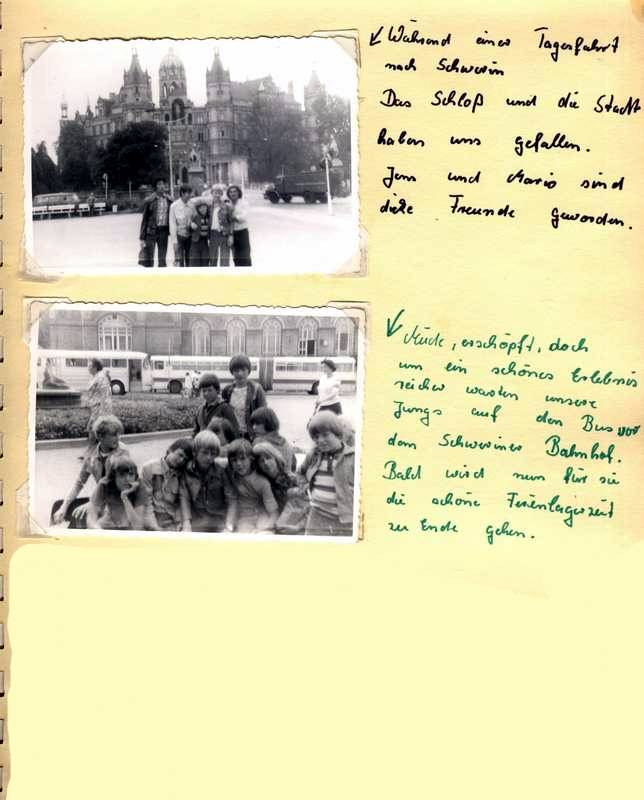 Während einer Tagesfahrt
nach Schwerin
Das Schloß und die Stadt
haben uns gefallen.
Jens und Mario sind
dicke Freunde geworden.
Müde, erschöpft, doch
um ein schönes Erlebnis
reicher warten unsere
Jungs auf den Bus vor
dem Schweriner Bahnhof.
Bald wird nun für sie
die schöne Ferienlagerzeit
zu Ende gehen.